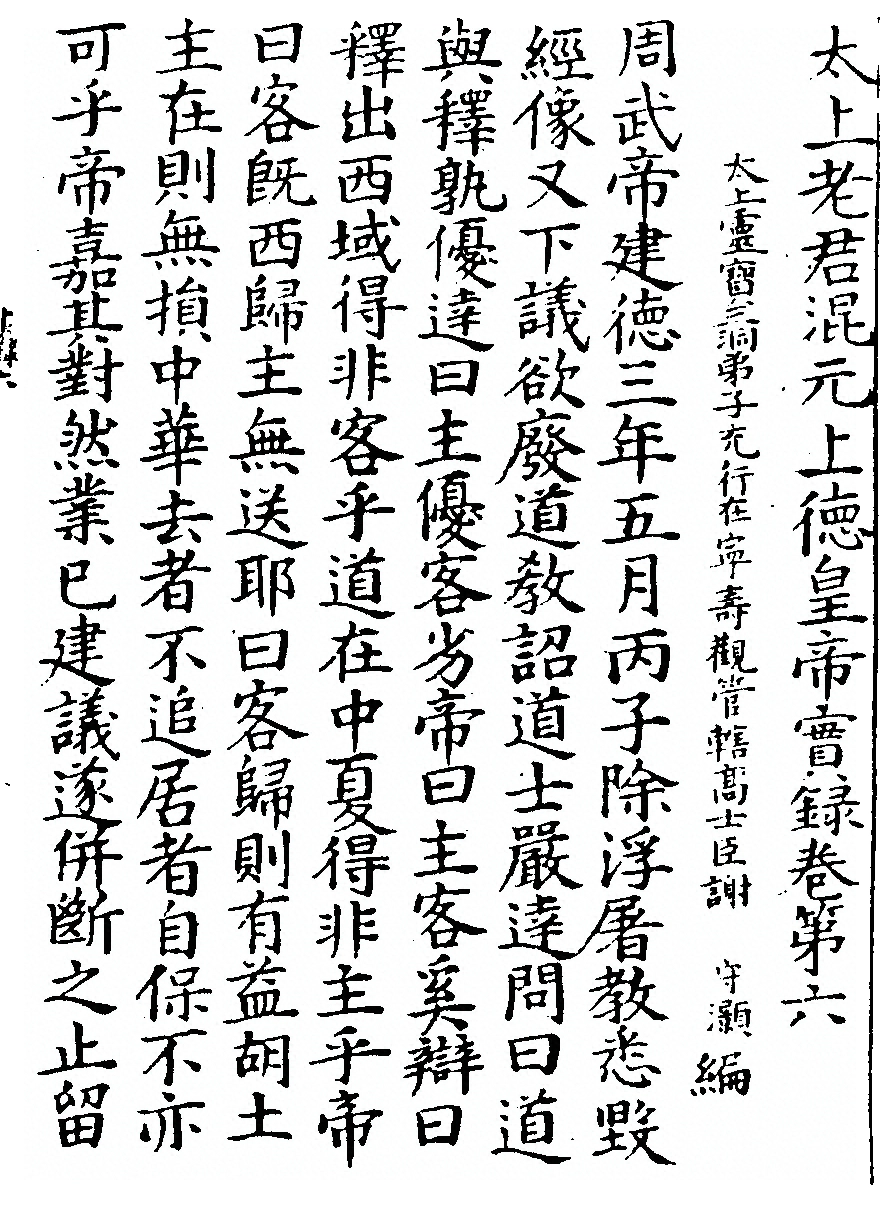 太上老君混元上德皇帝實録卷第六
太上靈寶三洞弟子充行在寧壽觀管轄高士臣謝　守灝編
周武帝建德三年五月丙子除浮屠教悉毀
經像又下議欲廢道教詔道士嚴達問曰道
與釋孰優達曰主優客劣帝曰主客奚辯曰
釋出西域得非客乎道在中夏得非主乎帝
曰客既西歸主無送耶曰客歸則有益胡土
主在則無損中華去者不追居者自保不亦
可乎帝嘉其對然業已建議遂併斷之止留